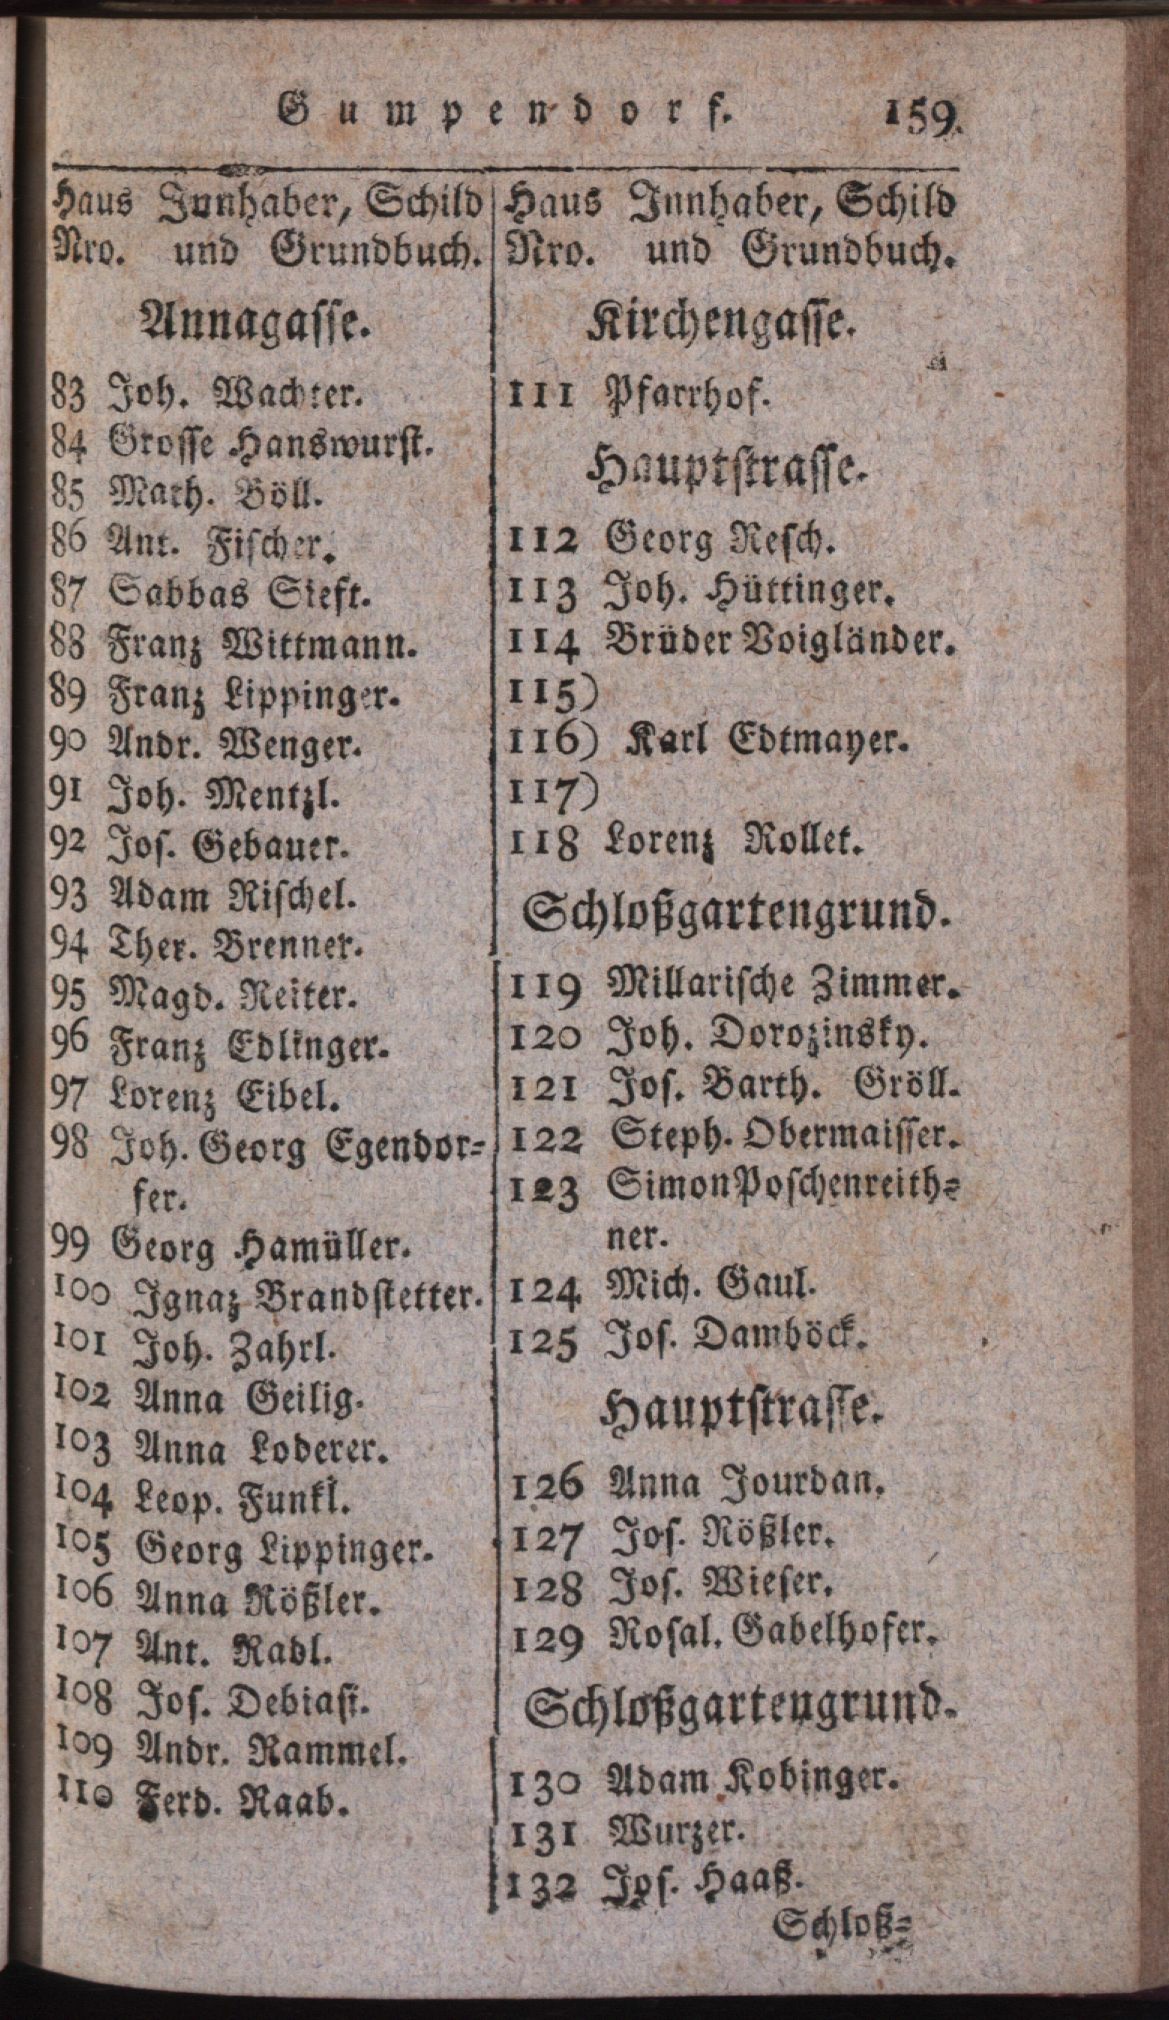 Gumpendorf. 159.
Haus Innhaber, Schild
Nro. und Grundbuch.
Annagasse.
83 Joh. Wachter.
84 Grosse Hanswurst.
85 Math. Böll.
86 Ant. Fischer.
87 Sabbas Sieft.
88 Franz Wittmann.
89 Franz Lippinger.
90 Andr. Wenger.
91 Joh. Mentzl.
92 Jos. Gebauer.
93 Adam Rischel.
94 Ther. Brenner.
95 Magd. Reiter.
96 Franz Edlinger.
97 Lorenz Eibel.
98 Joh. Georg Egendor-
fer.
99 Georg Hamüller.
100 Ignaz Brandstetter.
101 Joh. Zahrl.
102 Anna Geilig.
103 Anna Loderer.
104 Leop. Funkl.
105 Georg Lippinger.
106 Anna Rößler.
107 Ant. Radl.
108 Jos. Debiasi.
109 Andr. Rammel.
110 Ferd. Raab.
Haus Innhaber, Schild
Nro. und Grundbuch.
Kirchengasse.
111 Pfarrhof.
Hauptstrasse.
112 Georg Resch.
113 Joh. Hüttinger.
114 Brüder Voigländer.
115)
116) Karl Edtmayer.
117)
118 Lorenz Rollet.
Schloßgartengrund.
119 Millarische Zimmer.
120 Joh. Dorozinsky.
121 Jos. Barth. Gröll.
122 Steph. Obermaisser.
123 Simon Poschenreith-
ner.
124 Mich. Gaul.
125 Jos. Damböck.
Hauptstrasse.
126 Anna Jourdan.
127 Jos. Rößler.
128 Jos. Wieser.
129 Rosal. Gabelhofer.
Schloßgartengrund.
130 Adam Kobinger.
131 Wurzer.
132 Jos. Haaß.
Schloß-